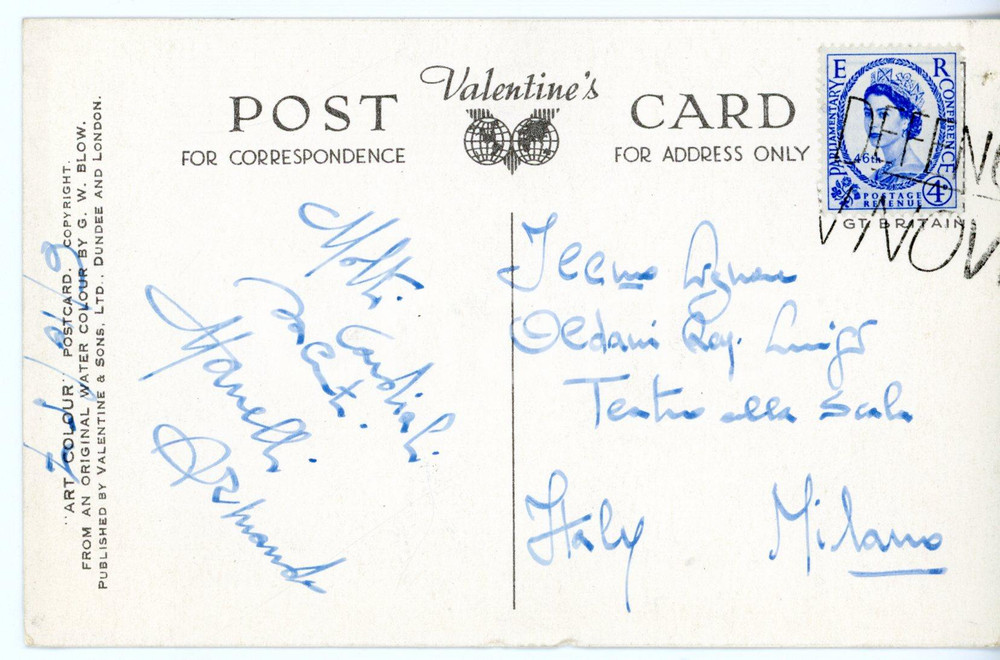 Valentine's
POST CARD
FOR CORRESPONDENCE
FOR ADDRESS ONLY
E R
PARLIAMENTARY CONFERENCE
46th
4D
POSTAGE
REVENUE
GT. BRITAIN
"ART COLOUR" POSTCARD. COPYRIGHT.
FROM AN ORIGINAL WATER COLOUR BY G. W. BLOW.
PUBLISHED BY VALENTINE & SONS, LTD., DUNDEE AND LONDON.
Molti Cordiali
Manelli
Armando
Ill.mo Signor
Oldani Rag. Luigi
Teatro alla Scala
Italy Milano